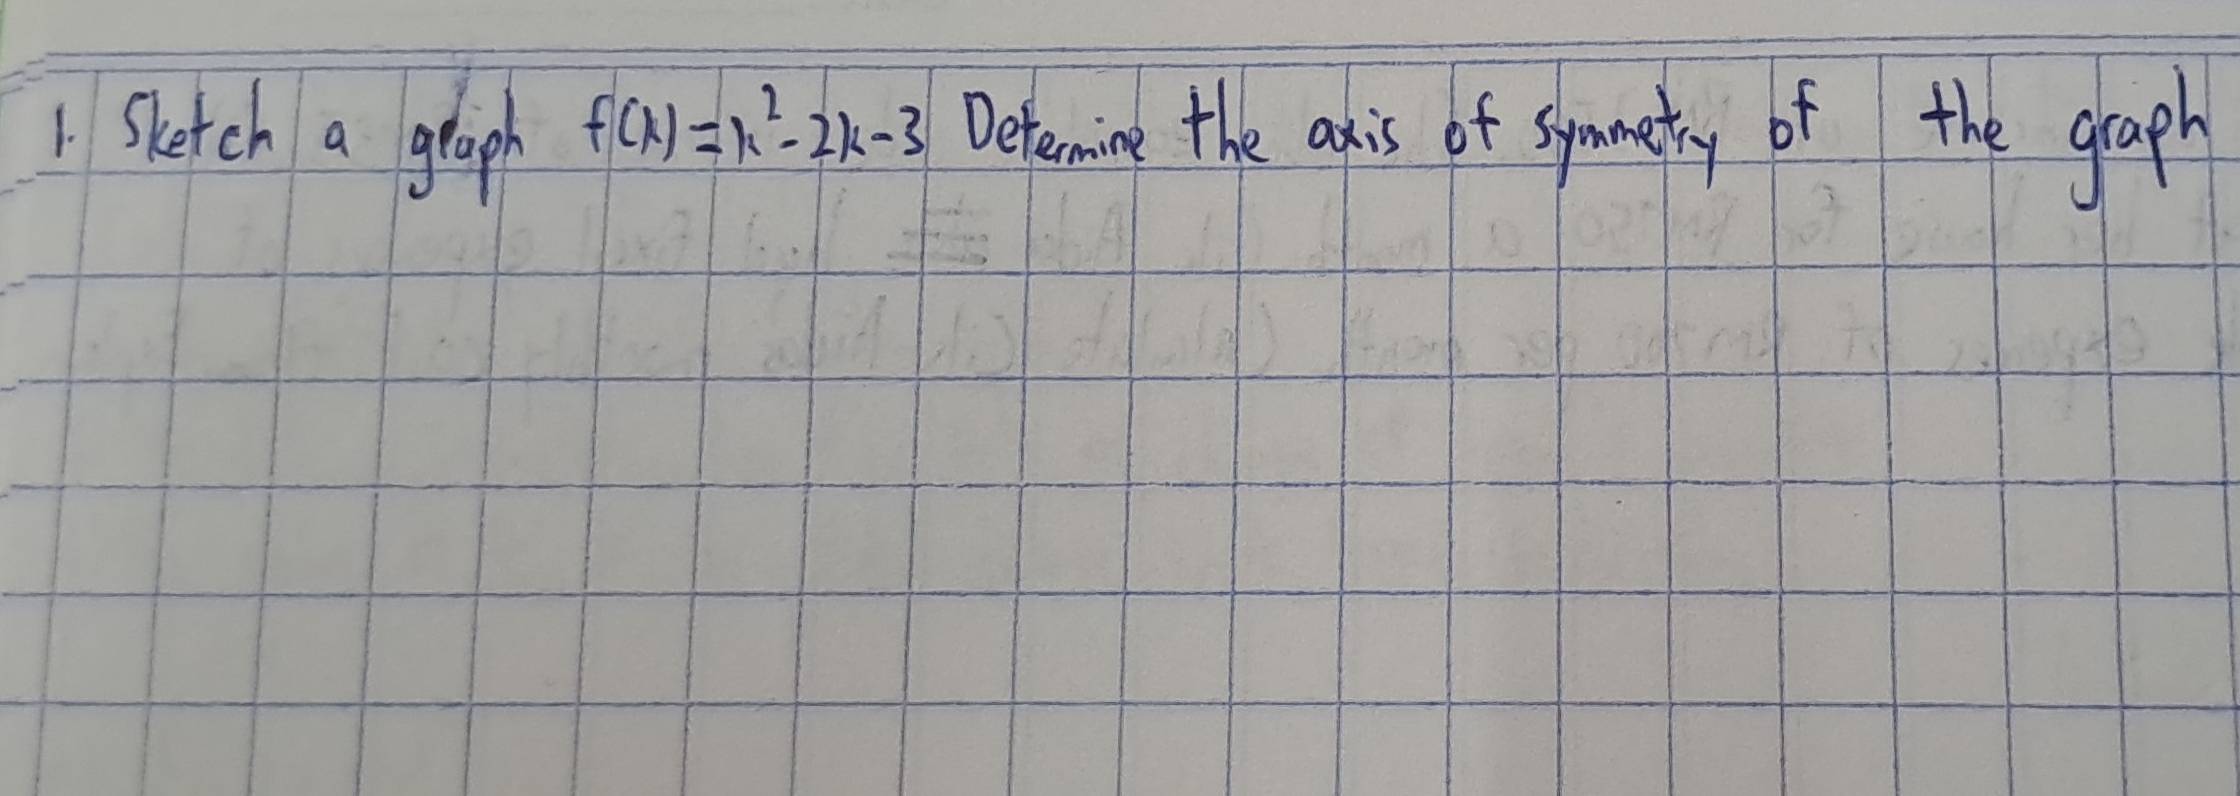 1. Sketch a graph f(x) = x² - 2x - 3 Determine the axis of symmetry of the graph